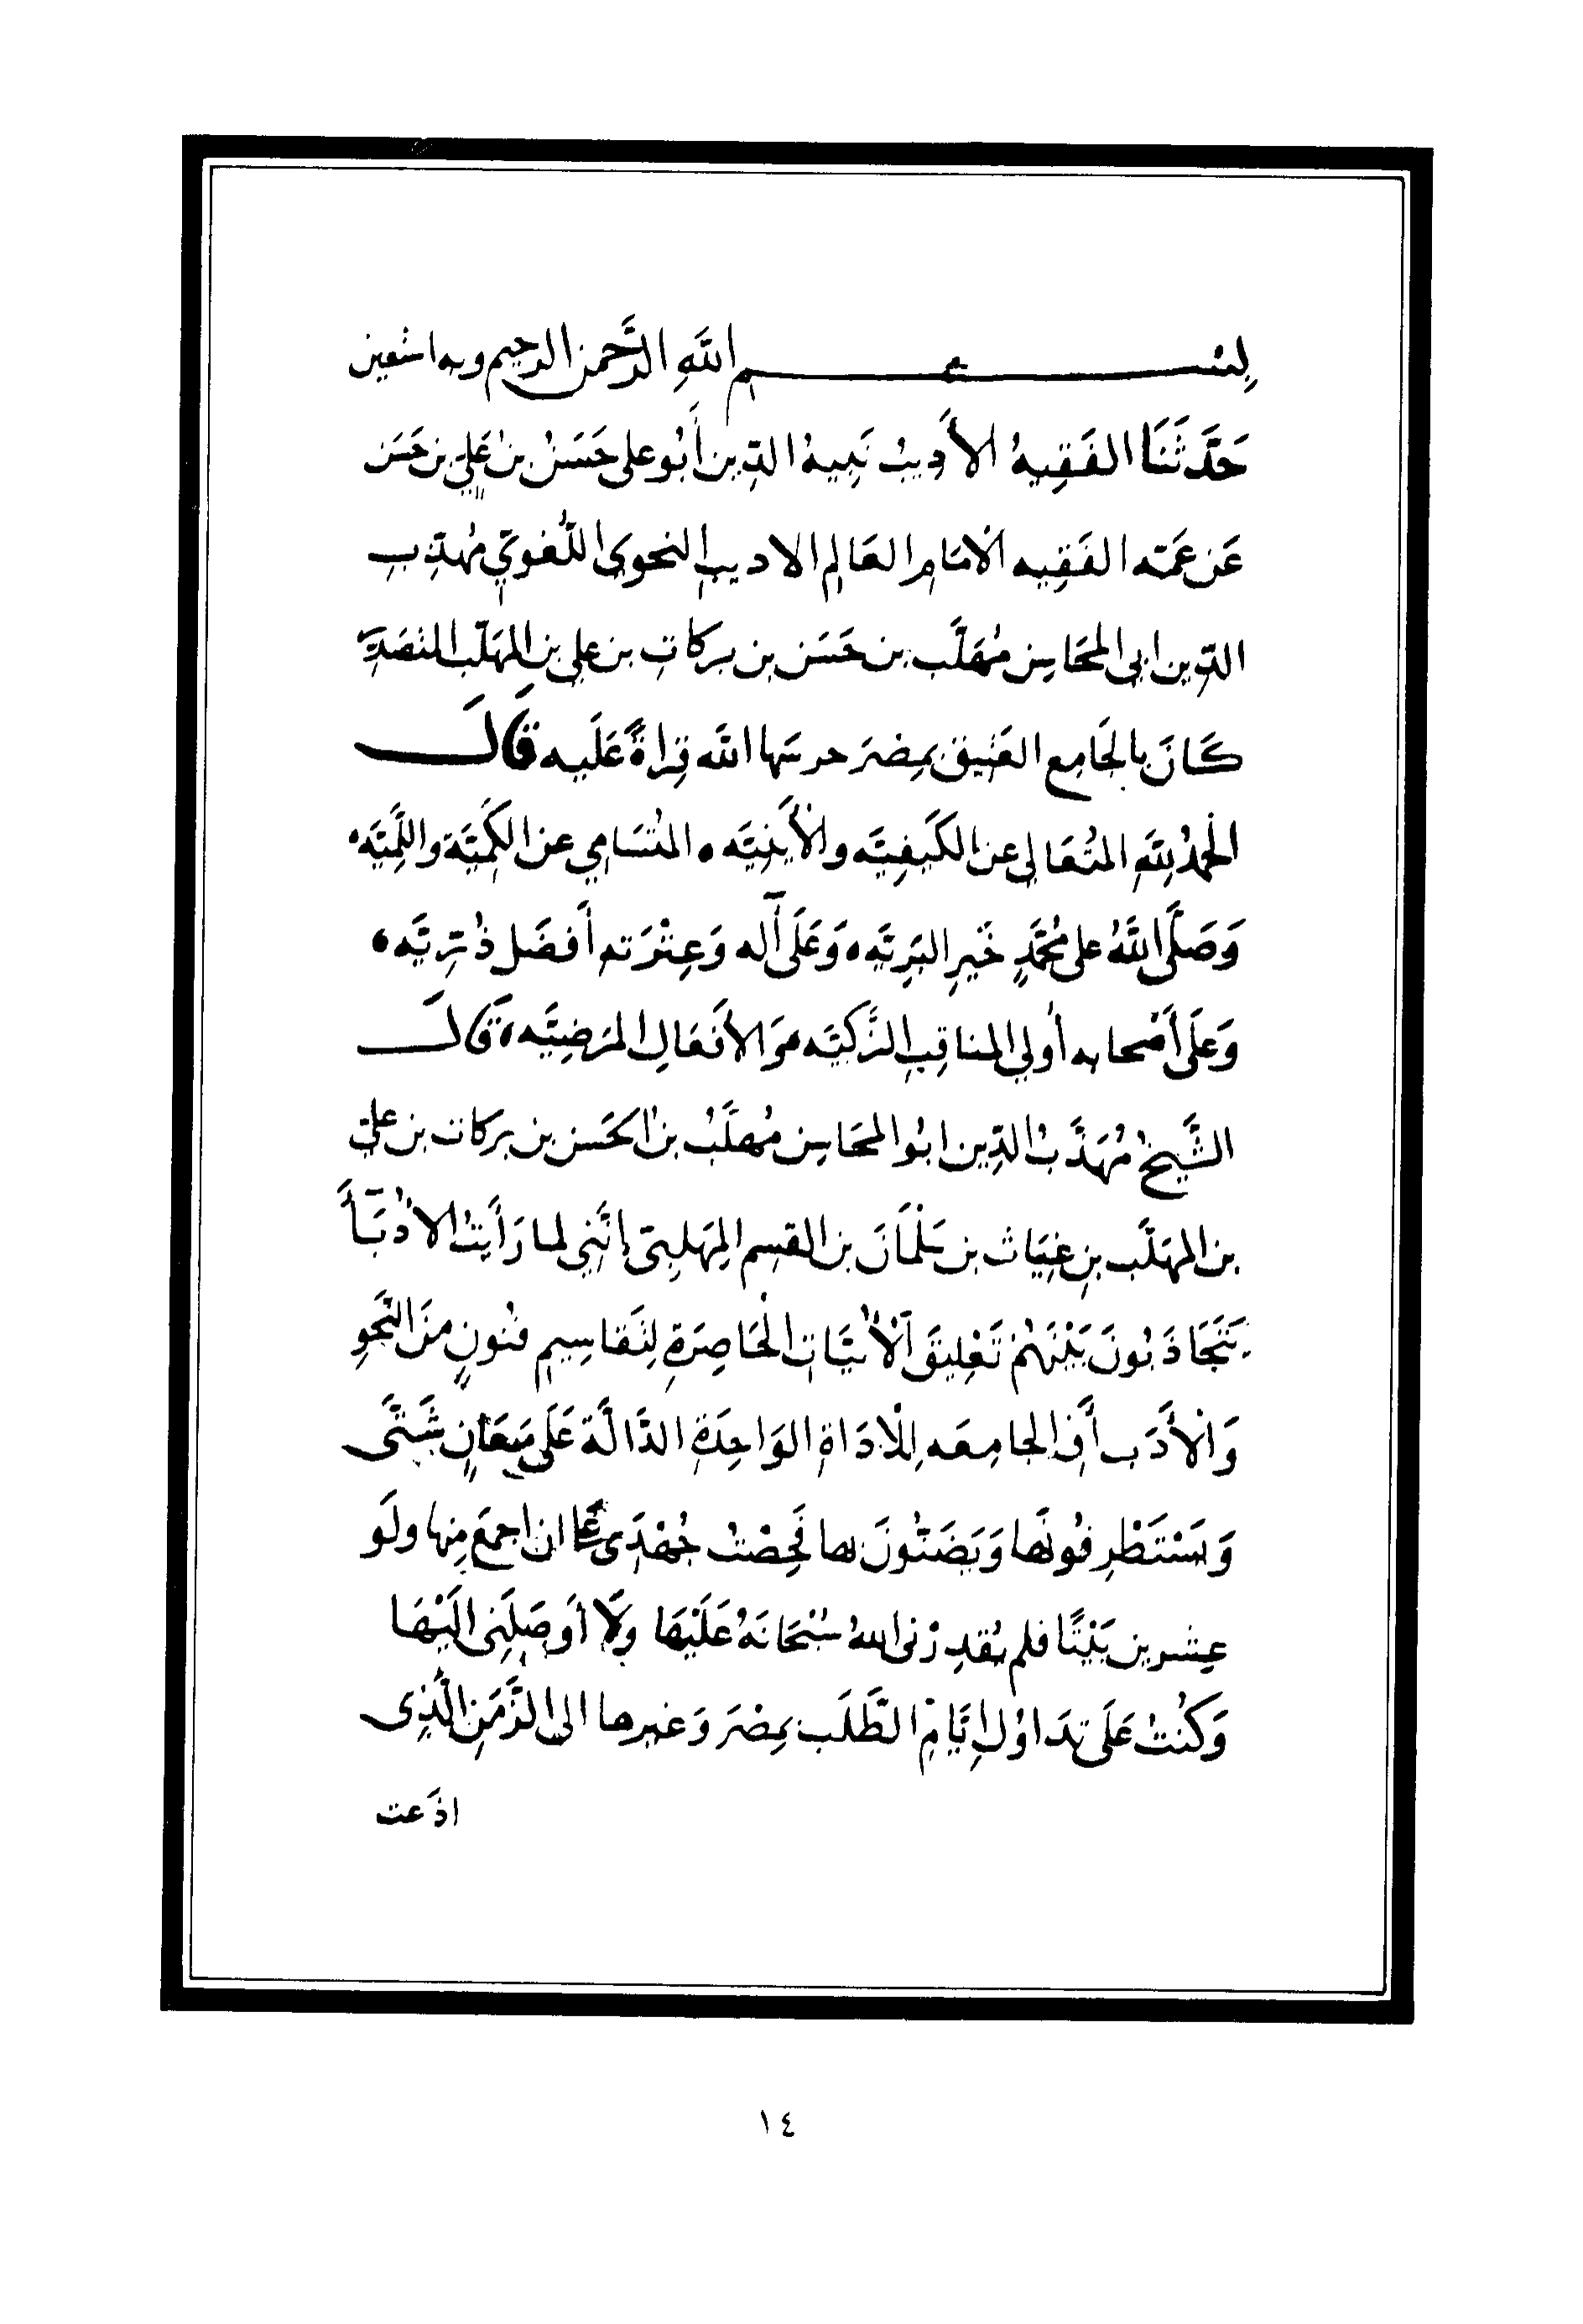 بسم الله الرَّحمن الرحيم وبه استعين
حَدَّثَنَا الفَقِيهُ الأَديبُ نَبِيهُ الدِّين أَبُو على حَسَنُ بن عَلِيّ بن حَسَن
عَن عَمّه الفَقِيه الامَامِ العَالِمِ الاديبِ النحوى اللُّغوىِّ مُهذّبِ
الدّين ابى المحَاسِن مُهَلَّب بن حَسَن بن بركاتِ بن على بن المهَلّب المُتَصَدِّر
كَانَ بالجَامِع العَتيق بمِصْرَ حرسَها الله قِراةً عَلَيه قَالَ
الحَمدُ للهِ المتُعَالِى عن الكَيفِيَّه والأَينِيَّه المتُسَامِي عن الكَمِيَّة واللِّمِيَّه
وَصَلَّى اللهُ على مُحَمَّدٍ خَيرِ البَرِيَّه وَعَلَى آله وَعِتْرَتهِ أَفضَل ذُرِّيَّه
وَعَلَى أَصْحابه أُولي المناقِبِ الزَّكيَّه وَالأَفعَالِ المَرضِيَّه قَالَ
الشَّيخُ مُهَذَّبُ الدِّين ابُو المحَاسِن مُهلَّبُ بن الحَسَن بن بركات بن علىّ
بن المهَلَّب بن غِيَاث بن سَلْمَانَ بن القسِم المهَلبِىّ اِنَّنِي لما رَأَيتُ الأُدَبَآَ
يَتَجَاذَبُونَ بَيْنَهُمْ تَعْلِيقَ اَلأَبْيَاتِ الحَاصِرَةِ لِتَقاسِيمِ فنُونٍ مِنَ النَّحوِ
وَالأَدَب أَوِ الجامِعَه لِلأدَاةِ الوَاحِدَةِ الدَّالَّة عَلَى مَعَانٍ شَتَّى
وَيَسْتَطْرِفُونَها وَيَضَنُّونَ بها فَحِصْتُ جُهْدِى عَلَى ان اجمعَ مِنها ولَو
عِشرين بَيْتًا فلم يُقدِرْنى اللهُ سُبْحَانَهُ عَلَيْهَا وَلَا أَوصَلَنِى الَيْهَا
وَكنُتُ عَلَى تدَاوُلِ ايَّامِ الطَّلَب بمِصْرَ وَغيرها الى الزَّمَنِ الَّذِى
اذعت
١٤